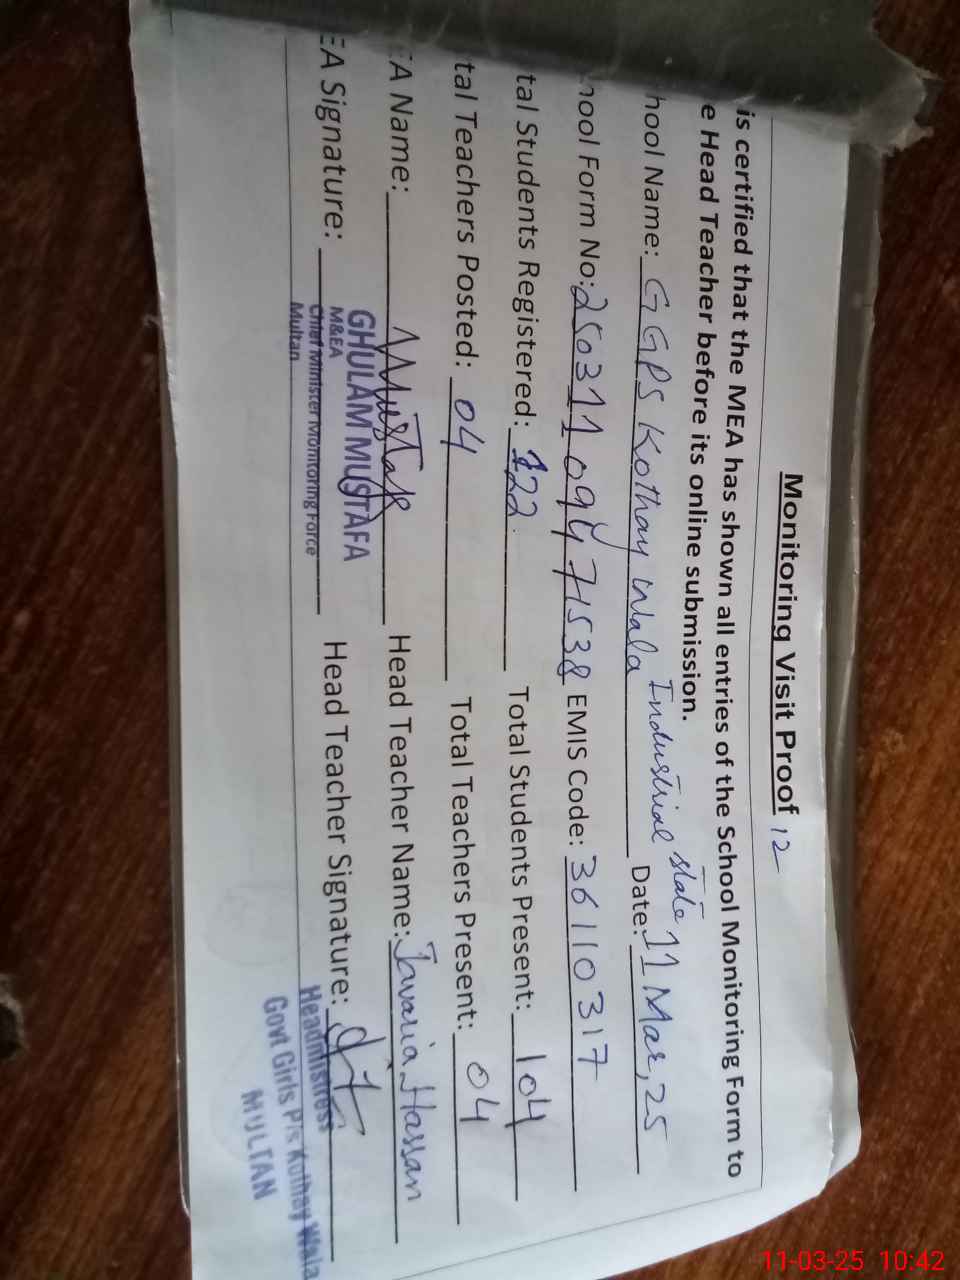 Monitoring Visit Proof 12
is certified that the MEA has shown all entries of the School Monitoring Form to
e Head Teacher before its online submission.
hool Name: GGPS Kothay Wala Industrial state Date: 11 Mar, 25
hool Form No: 25031109471538 EMIS Code: 36110317
tal Students Registered: 122 Total Students Present: 104
tal Teachers Posted: 04 Total Teachers Present: 04
EA Name: Head Teacher Name: Javaria Hassan
EA Signature: Head Teacher Signature:
GHULAM MUSTAFA
M&EA
Chief Minister Monitoring Force
Multan
Headmistress
Govt Girls P/s Kothay Wala
MULTAN
11-03-25 10:42